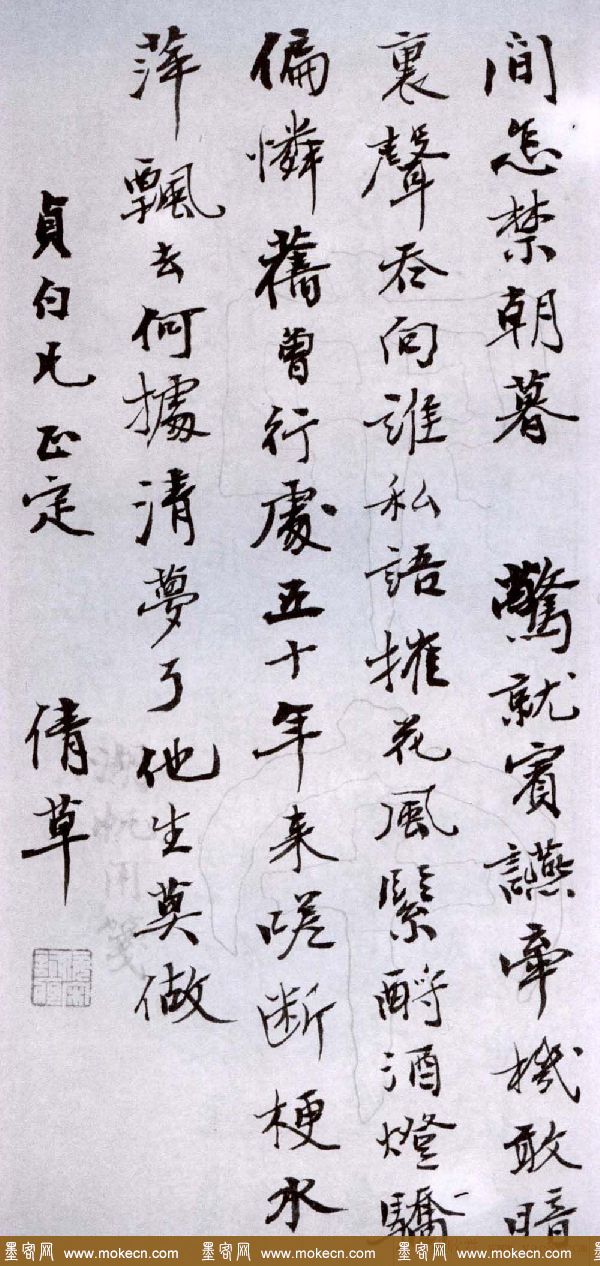 間怎禁朝暮　驚就賓讌牽機敢暗
裏聲吞向誰私語摧花風緊酹酒燈驕
偏憐舊曾行處五十年来嗟斷梗水
萍飄去何據清夢了他生莫做
貞白兄正定　倩草
湖帆用箋
墨客网 www.mokecn.com 墨客网 www.mokecn.com 墨客网 www.mokecn.com